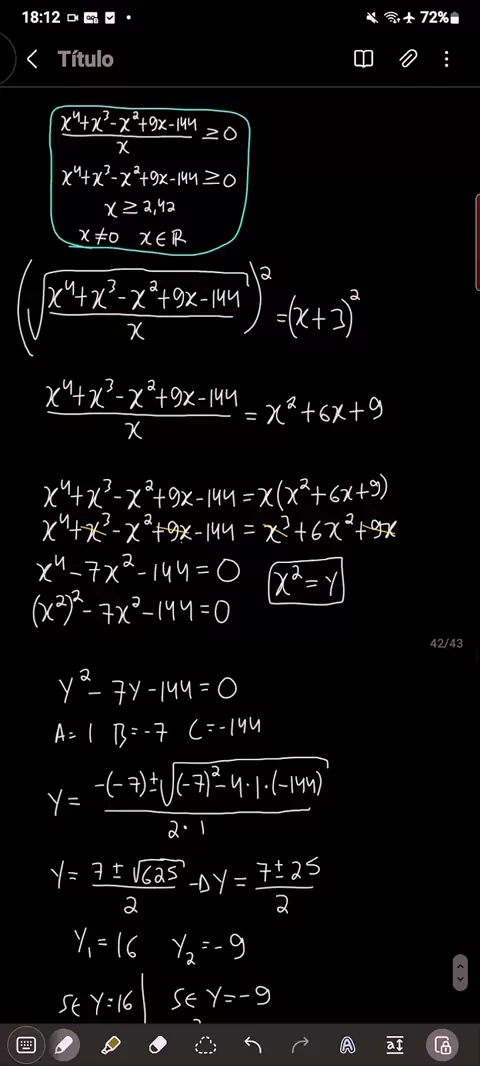 18:12 72%
Título
x⁴+x³-x²+9x-144 / x ≥ 0
x⁴+x³-x²+9x-144 ≥ 0
x ≥ 2,42
x≠0 x∈ℝ
(√((x⁴+x³-x²+9x-144) / x))² = (x+3)²
(x⁴+x³-x²+9x-144) / x = x²+6x+9
x⁴+x³-x²+9x-144 = x(x²+6x+9)
x⁴+x³-x²+9x-144 = x³+6x²+9x
x⁴-7x²-144=0 x²=Y
(x²)²-7x²-144=0
42/43
Y²-7Y-144=0
A=1 B=-7 C=-144
Y= (-(-7)±√((-7)²-4·1·(-144))) / 2·1
Y= (7±√625) / 2 -D Y= (7±25) / 2
Y₁=16 Y₂=-9
SE Y=16 | SE Y=-9